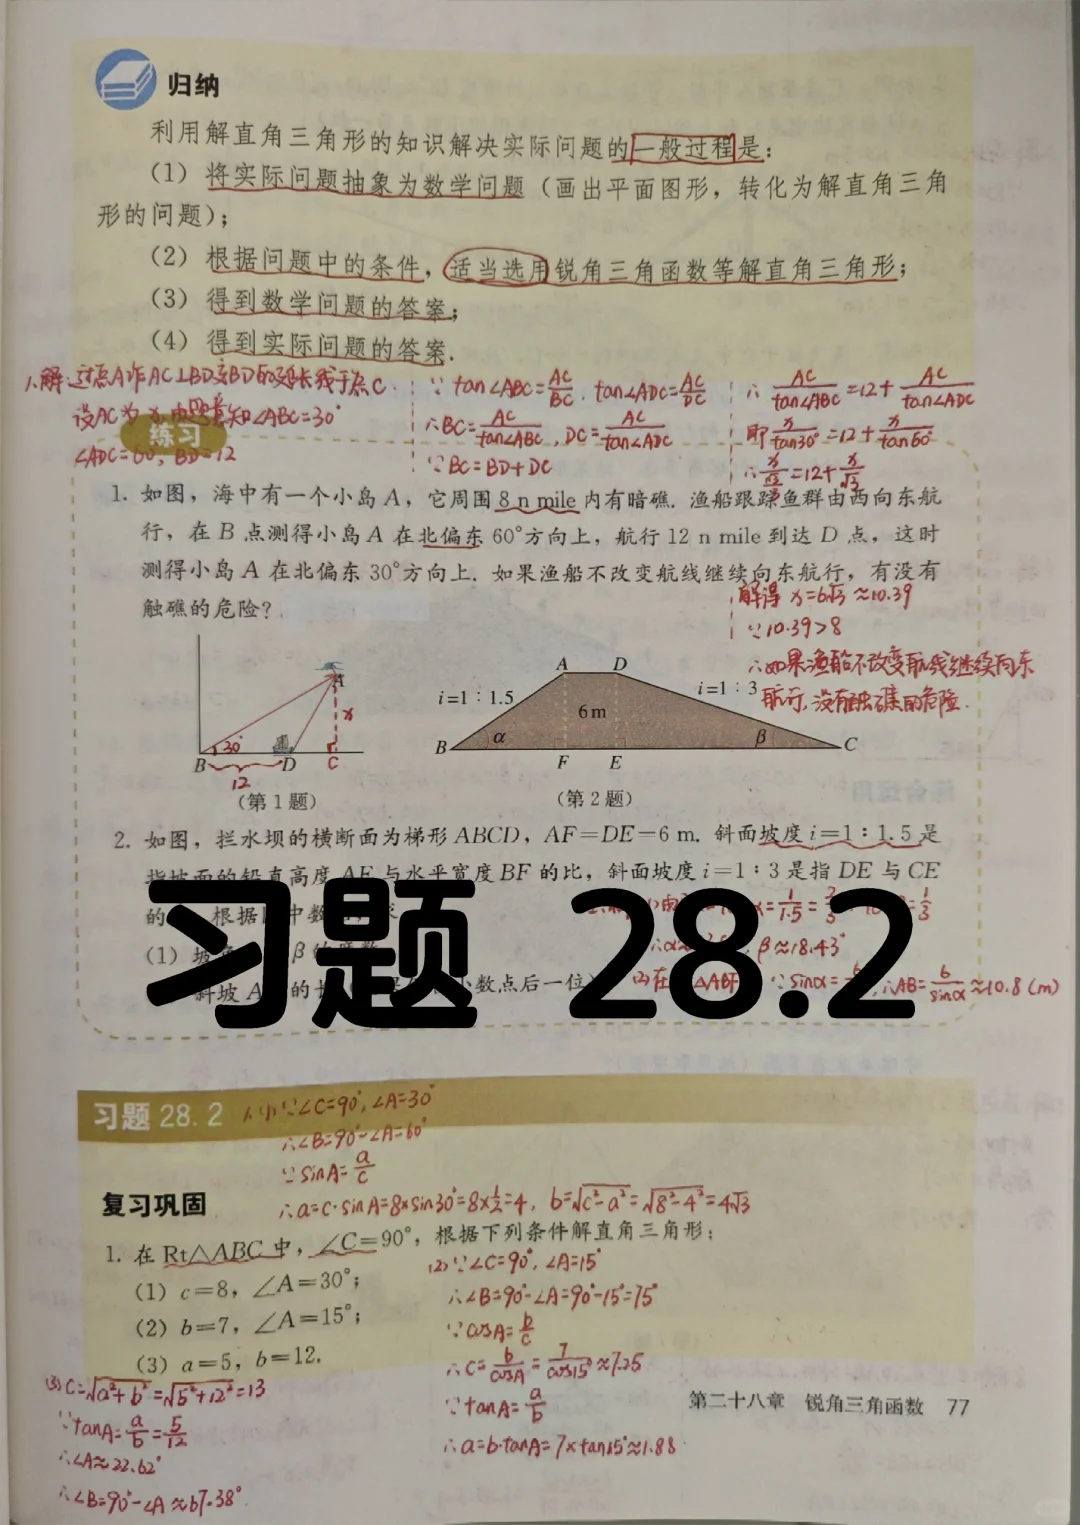 归纳
利用解直角三角形的知识解决实际问题的一般过程是：
(1) 将实际问题抽象为数学问题（画出平面图形，转化为解直角三角
形的问题）；
(2) 根据问题中的条件，适当选用锐角三角函数等解直角三角形；
(3) 得到数学问题的答案；
(4) 得到实际问题的答案.
1.解：过点A作AC⊥BD交BD的延长线于点C.
设AC为x.由题意知∠ABC=30°
∠ADC=60°, BD=12
∵ tan∠ABC=AC/BC, tan∠ADC=AC/DC
∴BC=AC/tan∠ABC, DC=AC/tan∠ADC
∵BC=BD+DC
∴ AC/tan∠ABC=12+AC/tan∠ADC
即 x/tan30°=12+x/tan60°
练习
1. 如图，海中有一个小岛 A，它周围 8 n mile 内有暗礁. 渔船跟踪鱼群由西向东航
行，在 B 点测得小岛 A 在北偏东 60°方向上，航行 12 n mile 到达 D 点，这时
测得小岛 A 在北偏东 30°方向上. 如果渔船不改变航线继续向东航行，有没有
触礁的危险？
解得 x=6√3≈10.39
∵10.39>8
∴如果渔船不改变航线继续向东
航行,没有触礁的危险.
A
x
30°
B
D
C
12
（第 1 题）
A
D
i=1∶1.5
i=1∶3
6 m
B
α
β
C
F
E
（第 2 题）
2. 如图，拦水坝的横断面为梯形 ABCD，AF=DE=6 m. 斜面坡度 i=1∶1.5 是
指坡面的铅直高度 AF 与水平宽度 BF 的比，斜面坡度 i=1∶3 是指 DE 与 CE
的 根据 中数
=1/1.5=2/3
=1/3
(1) 坡 β
β≈18.43°
斜坡 A 的长 小数点后一位）
∵sinα=
∴AB=6/sinα≈10.8(m)
习题 28.2
习题 28.2
1.(1)∵∠C=90°,∠A=30°
∴∠B=90°-∠A=60°
∵sinA=a/c
∴a=c·sinA=8×sin30°=8×1/2=4, b=√(c²-a²)=√(8²-4²)=4√3
复习巩固
1. 在 Rt△ABC 中，∠C=90°，根据下列条件解直角三角形：
(1) c=8，∠A=30°；
(2) b=7，∠A=15°；
(3) a=5，b=12.
(2)∵∠C=90°,∠A=15°
∴∠B=90°-∠A=90°-15°=75°
∵cosA=b/c
∴c=b/cosA=7/cos15°≈7.25
∵tanA=a/b
∴a=b·tanA=7×tan15°≈1.88
(3)c=√(a²+b²)=√(5²+12²)=13
∵tanA=a/b=5/12
∴∠A≈22.62°
∴∠B=90°-∠A≈67.38°
第二十八章 锐角三角函数 77